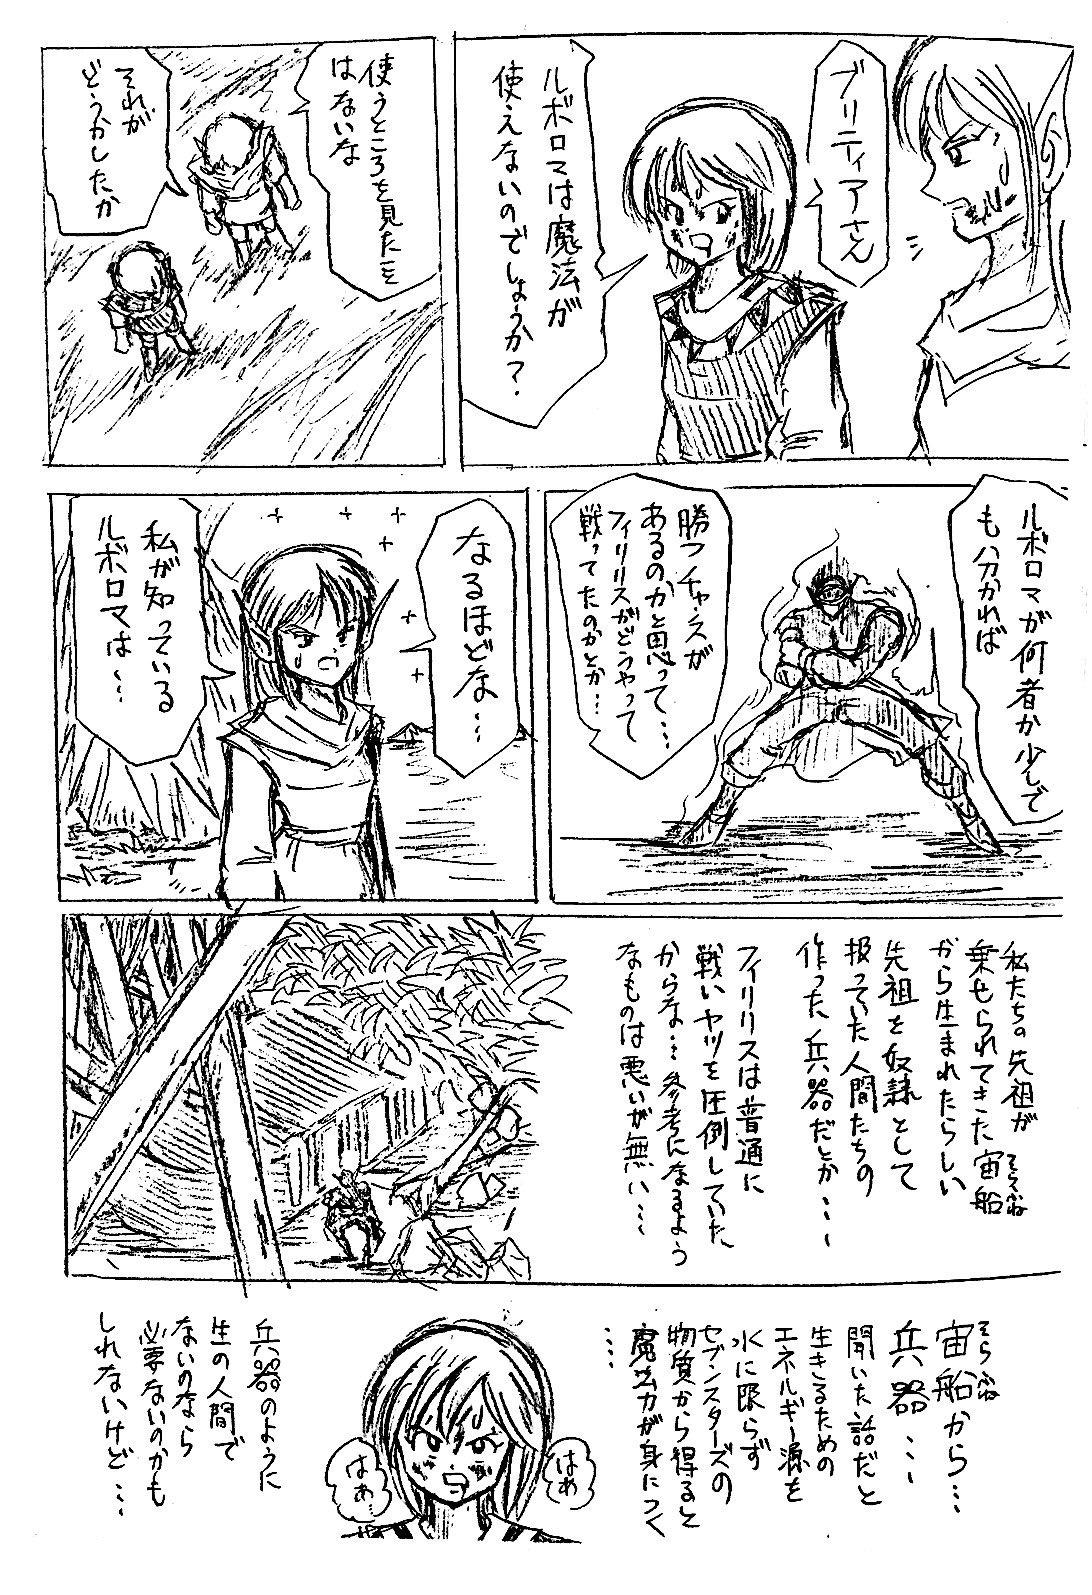 ブリティアさん
ルボロマは魔法が
使えないのでしょうか？
使うところを見たこと
はないな
それが
どうかしたか
ルボロマが何者か少しで
も分かれば
勝つチャンスが
あるのかと思って…
フィリリスがどうやって
戦ってたのかとか…
なるほどな…
私が知っている
ルボロマは…
私たちの先祖が
乗せられてきた宙船
そらふね
から生まれたらしい
先祖を奴隷として
扱っていた人間たちの
作った兵器だとか…
フィリリスは普通に
戦いヤツを圧倒していた
からな…参考になるよう
なものは悪いが無い…
宙船から…
そらふね
兵器…
聞いた話だと
生きるための
エネルギー源を
水に限らず
セブンスターズの
物質から得ると
魔法力が身につく
…
はぁ
はぁ
兵器のように
生の人間で
ないのなら
必要ないのかも
しれないけど…